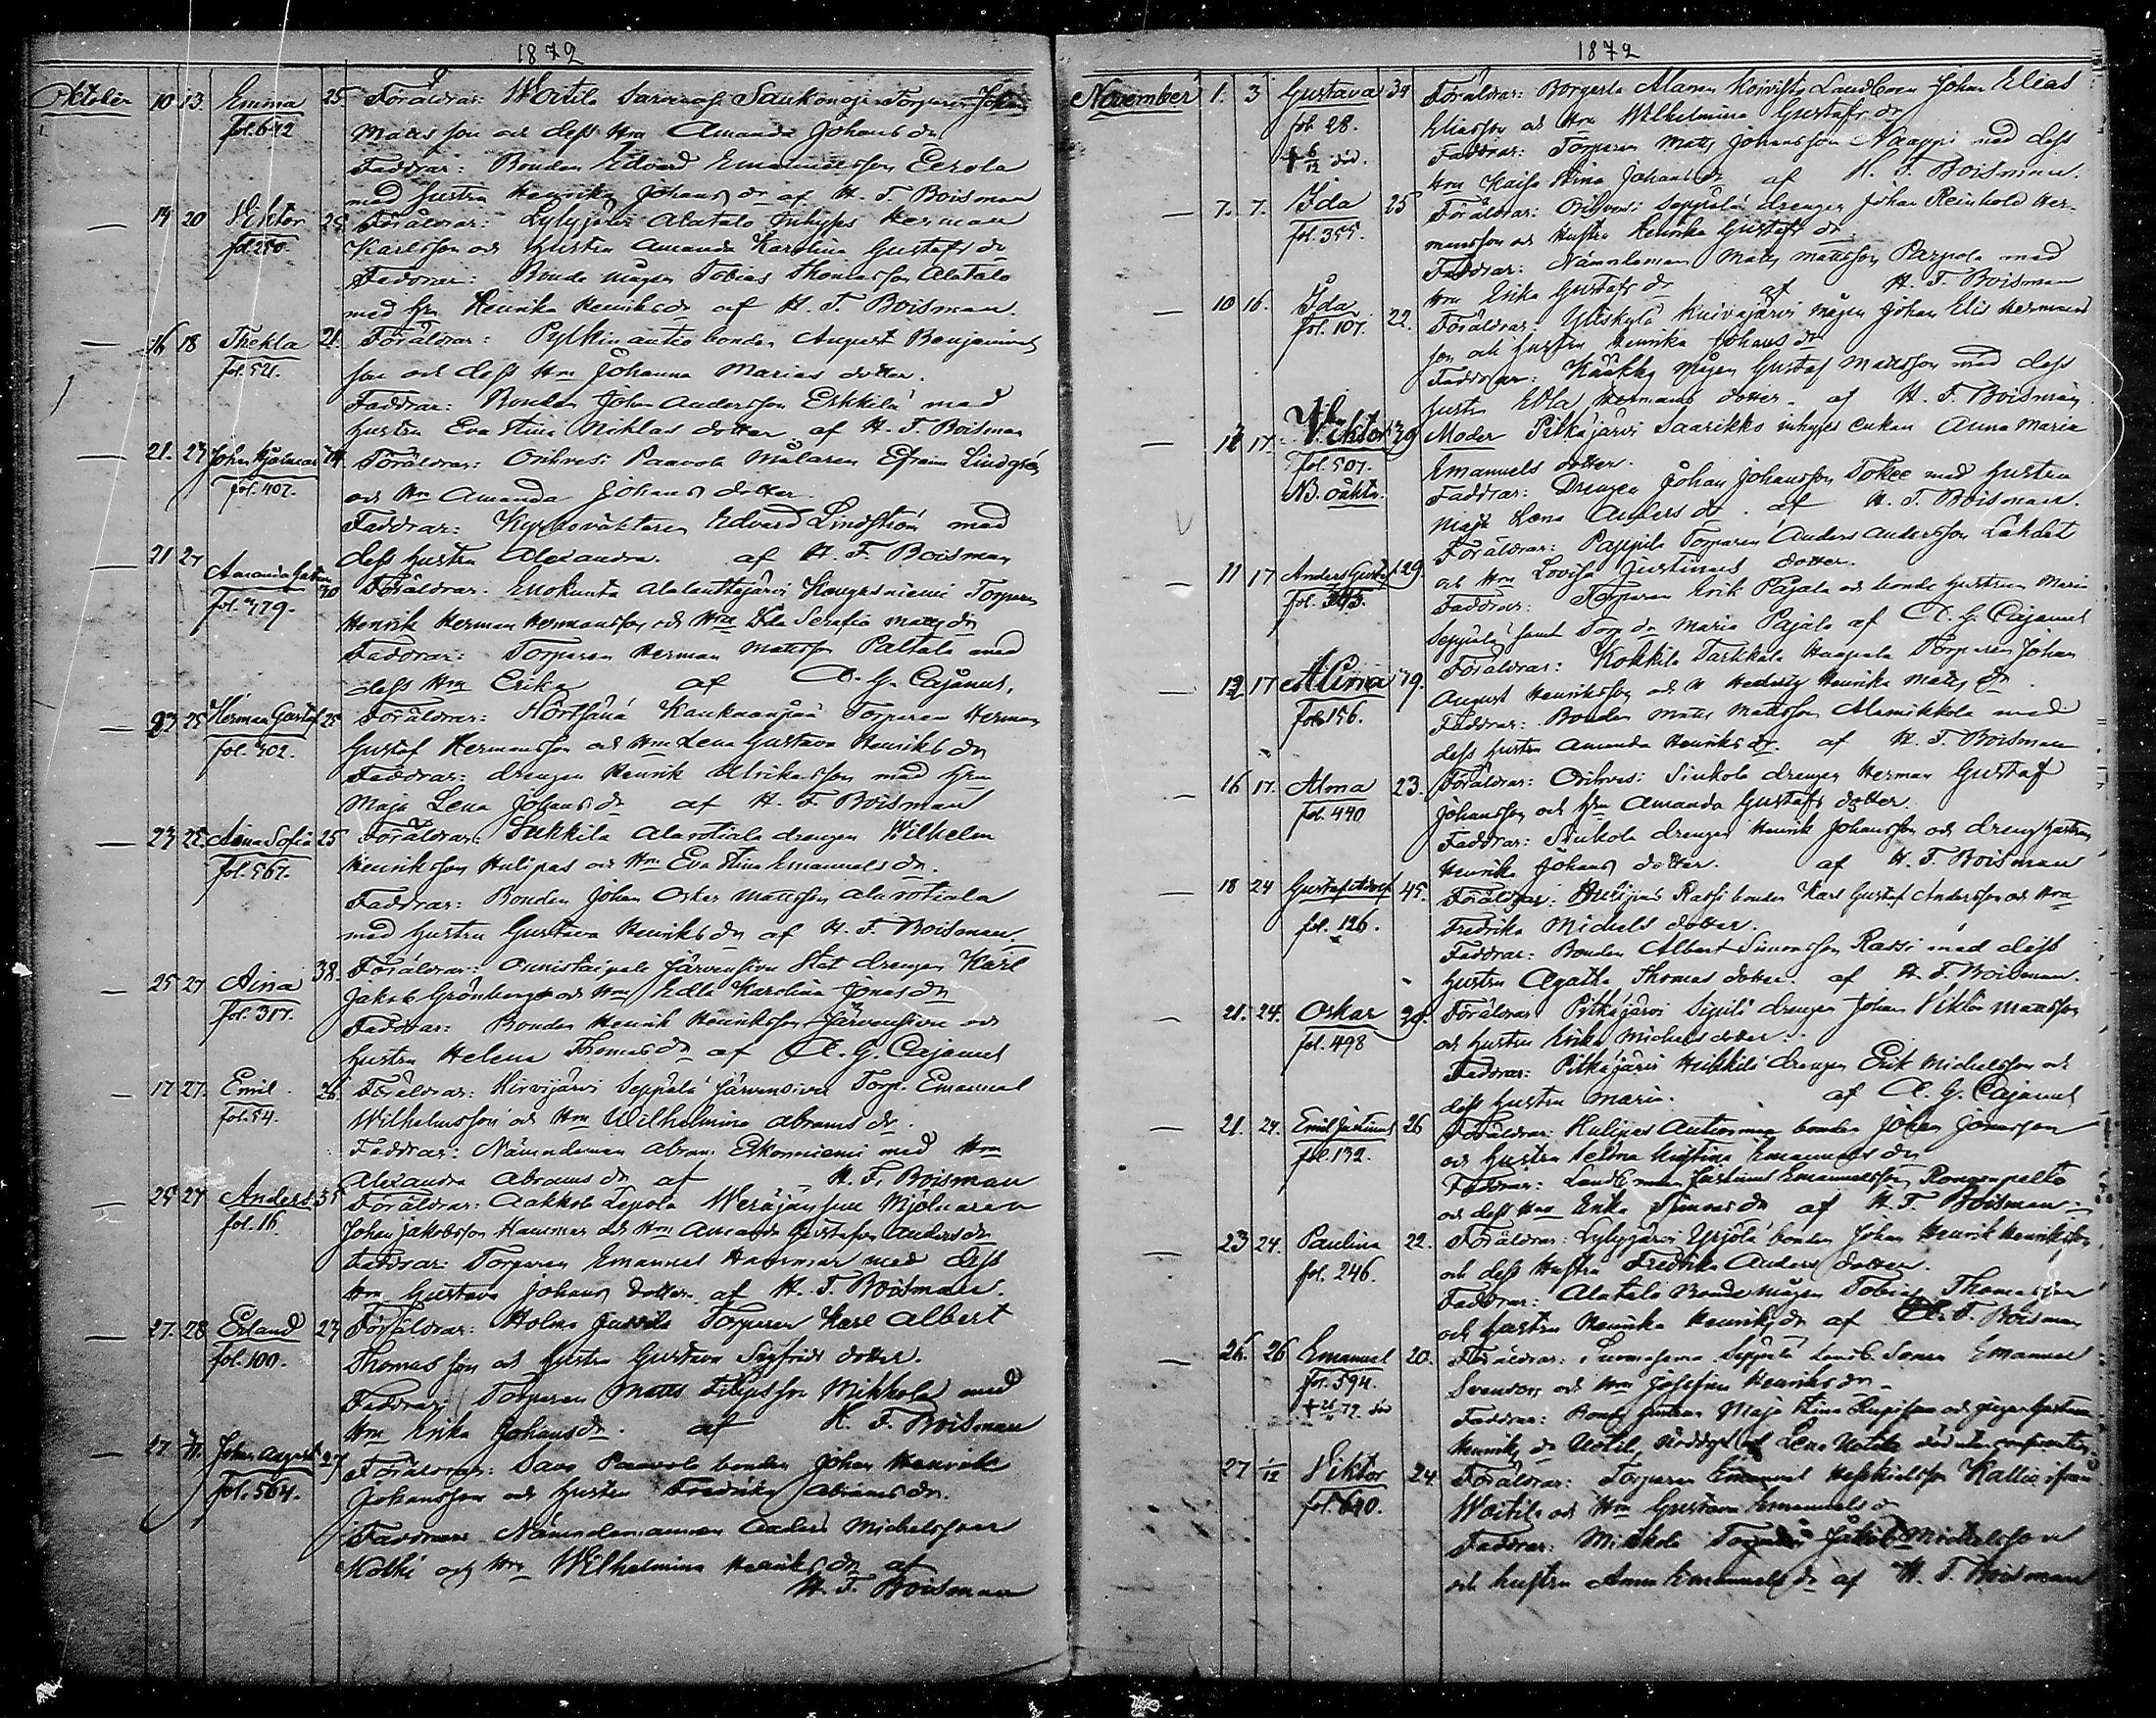 1872
Oktober 10 13. Emma 25 Föräldrar: Woitila Sarvenoja Saukonoja Torparen Johan
fol. 642 Matts son och dess Hru Amanda Johans dr
Faddrar: Bonden Edvard Emanuelsson Eerola
med hustru Henrika Johans dr af H. F. Boisman
19 20 Viktor 25 Föräldrar: Lylyjärvi Alatalo Inhyses Herman
fol. 250. Karlsson och hustru Amanda Karolina Gustafs dr
Faddrar: Bonde mågen Tobias Thomasson Alatalo
med Hru Henrika Henriks dr af H. F. Boisman.
16 18 Thekla 21. Föräldrar: bonden August Benjamins
fol. 521. son och dess Hru Johanna Marias dotter.
Faddrar: Bonden Johan Andersson Erkkilä med
hustru Eva Stina Niklas dotter af H. F. Boisman
21. 27 Johan Hjalmar Föräldrar: Orihvesi Paavola Målaren Efraim Lindgrén
fol. 407. och Hru Amanda Johans dotter
Faddrar: Kyrkoväktaren Edvard Lindström med
dess hustru Alexandra. af H. F. Boisman
21 27 Amanda 30 Föräldrar: Enokunta Torparen
fol. 479. Henrik Herman Hermansson och Hru Ida Serafia Matts dr
Faddrar: Torparen Herman Mattsson Paltala med
dess Hru Erika af A. G. Cajanus.
23 25 Herman Gustaf 25 Föräldrar: Torparen Herman
fol. 402. Gustaf Hermansson och Hru Lena Gustava Henriks dr
Faddrar: drengen Henrik Ulriksson med Hru
Maja Lena Johans dr af H. F. Boisman
23 25 Anna Sofia 25 Föräldrar: Sukkila Alarotiala drengen Wilhelm
fol. 567. Henriksson Hulipas och Hru Eva Stina Emanuels dr.
Faddrar: Bonden Johan Oskar Mattsson Alarotiala
med hustru Gustava Henriks dr af H. F. Boisman
25 27 Aina 38. Föräldrar: Onnistaipale Järvensivu Stat drengen Karl
fol. 317. Jakob Grönberg och Hru Edla Karolina Jonas dr
Faddrar: Bonden Henrik Henriksson Järvensivu och
hustru Helena Thomas dr af A. G. Cajanus
17 27. Emil 26 Föräldrar: Hirvijärvi Seppälä Järvensivu Torp. Emanuel
fol. 54. Wilhelmsson och Hru Wilhelmina Abrams dr.
Faddrar: Nämndeman Abram Eskonniemi med Hru
Alexandra Abrams dr af H. F. Boisman
25 27 Anders 35 Föräldrar: Aakkola Lepola Mjölnaren
fol. 16. Johan Jakobsson Hammar och Hru Amanda Gustafva Anders dr
Faddrar: Torparen Emanuel Hammar med dess
Hru Gustava Johans dotter af H. F. Boisman.
27. 28 Erland 27 Föräldrar: Holma Jussila Torparen Karl Albert
fol. 100. Thomas son och hustru Gustava Sigfrids dotter.
Faddrar: Torparen Matts Filipsson Mikkola med
Hru Erika Johans dr. af H. F. Boisman
27 Johan August 27 Föräldrar: Savo Paavola bonden Johan Henrik
fol. 564. Johansson och hustru Fredrika Abrams dr.
Faddrar: Nämndemannen Anders Michelsson
Kolhi och Hru Wilhelmina Henriks dr af
H. F. Boisman
1872
November 1. 3 Gustava 34 Föräldrar: Alanen Koivisto Landbonden Johan Elias
fol. 28. Eliasson och Hru Wilhelmina Gustafs dr
+ 6/12 död. Faddrar: Torparen Matts Johansson Naappi med dess
Hru Kaisa Stina Johans dr af H. F. Boisman.
7. 7. Ida 25 Föräldrar: Orihvesi Seppälä drengen Johan Reinhold Her-
fol. 355. mansson och Hustru Henrika Gustafs dr
Faddrar: Nämndeman Matts Mattsson Parpola med
Hru Erika Gustafs dr af H. F. Boisman
10 16. Ida 22. Föräldrar: Yliskylä Kuivajärvi mågen Johan Elis Hermans
fol. 107. son och hustru Henrika Johans dr
Faddrar: Kääkky mågen Gustaf Mattsson med dess
hustru Edla Hermans dotter. af H. F. Boisman
12 17. Viktor 29 Moder Pitkäjärvi Saarikko inhyses enkan Anna Maria
fol. 507. Emanuels dotter.
NB. oäkta. Faddrar: Drengen Johan Johansson Tokee med hustru
Maja Lena Anders dr. af H. F. Boisman.
11 17 Anders Gustaf 29. Föräldrar: Pappila Torparen Anders Andersson Lahdet
fol. 343. och Hru Lovisa Justinas dotter.
Faddrar: Torparen Erik Pajala och bonde hustrun Maria
Seppälä samt Torp dr Maria Pajala af A. G. Cajanus
12 17 Miina 19. Föräldrar: Kokkila Tarkkala Haapala Torparen Johan
fol. 156. August Henriksson och H Hedvig Henrika Matts dr.
Faddrar: Bonden Matts Mattsson Alamikkola med
dess hustru Amanda Henriks dr. af H. F. Boisman
16 17. Alma 23. Föräldrar: Orihvesi Siukola drengen Herman Gustaf
fol. 440 Johansson och Hru Amanda Gustafs dotter.
Faddrar: Siukola drengen Henrik Johansson och dreng hustrun
Henrika Johans dotter. af H. F. Boisman
18 24 Gustaf Adolf 45. Föräldrar: Rassi bonden Karl Gustaf Andersson och Hru
fol. 126. Fredrika Michels dotter.
Faddrar: Bonden Albert Simonsson Rassi med dess
hustru Agatha Thomas dotter. af H. F. Boisman.
21. 24. Oskar 29. Föräldrar Pitkäjärvi Sipilä drengen Johan Viktor Mattsson
fol. 498 och hustru Erika Michels dotter.
Faddrar: Pitkäjärvi Heikkilä drengen Erik Michelsson och
dess hustru Maria. af A. G. Cajanus
21. 24. Emil Justinus 26 Föräldrar: Hulipas bonden Johan Jonasson
fol. 132. och hustru Helena Kristina Emanuels dr
Faddrar: Landbonden Justinus Emanuelsson Rongonpelto
och dess Hru Erika Simons dr af H. F. Boisman
23 24. Paulina 22. Föräldrar: Lylyjärvi Yrjölä bonden Johan Henrik Henriksson
fol. 246. och dess Hustru Fredrika Anders dotter.
Faddrar: Alatalo Bonde mågen Tobias Thomasson
och hustru Henrika Henriks dr af H. F. Boisman
26. 26 Emanuel 20. Föräldrar: Seppälä Emanuel
fol. 594. Svensson och Hru Josefina Henriks dr
död Faddrar: Maja Stina och pigan Gustava
Henriks dr
27 1/12 Viktor 24. Föräldrar: Torparen Emanuel Kallio ifrån
fol. 640. Woitila och Hru Gustava Emanuels dr
Faddrar: Mikkola Torparen Jakob Michelsson
och hustru Anna Emanuels dr af H. F. Boisman